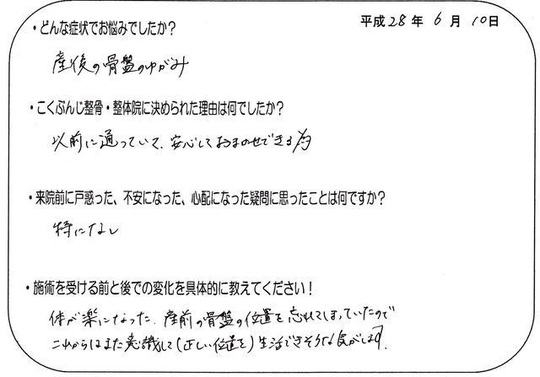 平成28年 6月 10日
・どんな症状でお悩みでしたか?
産後の骨盤のゆがみ
・こくぶんじ整骨・整体院に決められた理由は何でしたか?
以前に通っていて、安心しておまかせできる為
・来院前に戸惑った、不安になった、心配になった疑問に思ったことは何ですか?
特になし
・施術を受ける前と後での変化を具体的に教えてください!
体が楽になった。産前の骨盤の位置を忘れてしまっていたので
これからはまた意識して(正しい位置を)生活できそうな気がします。